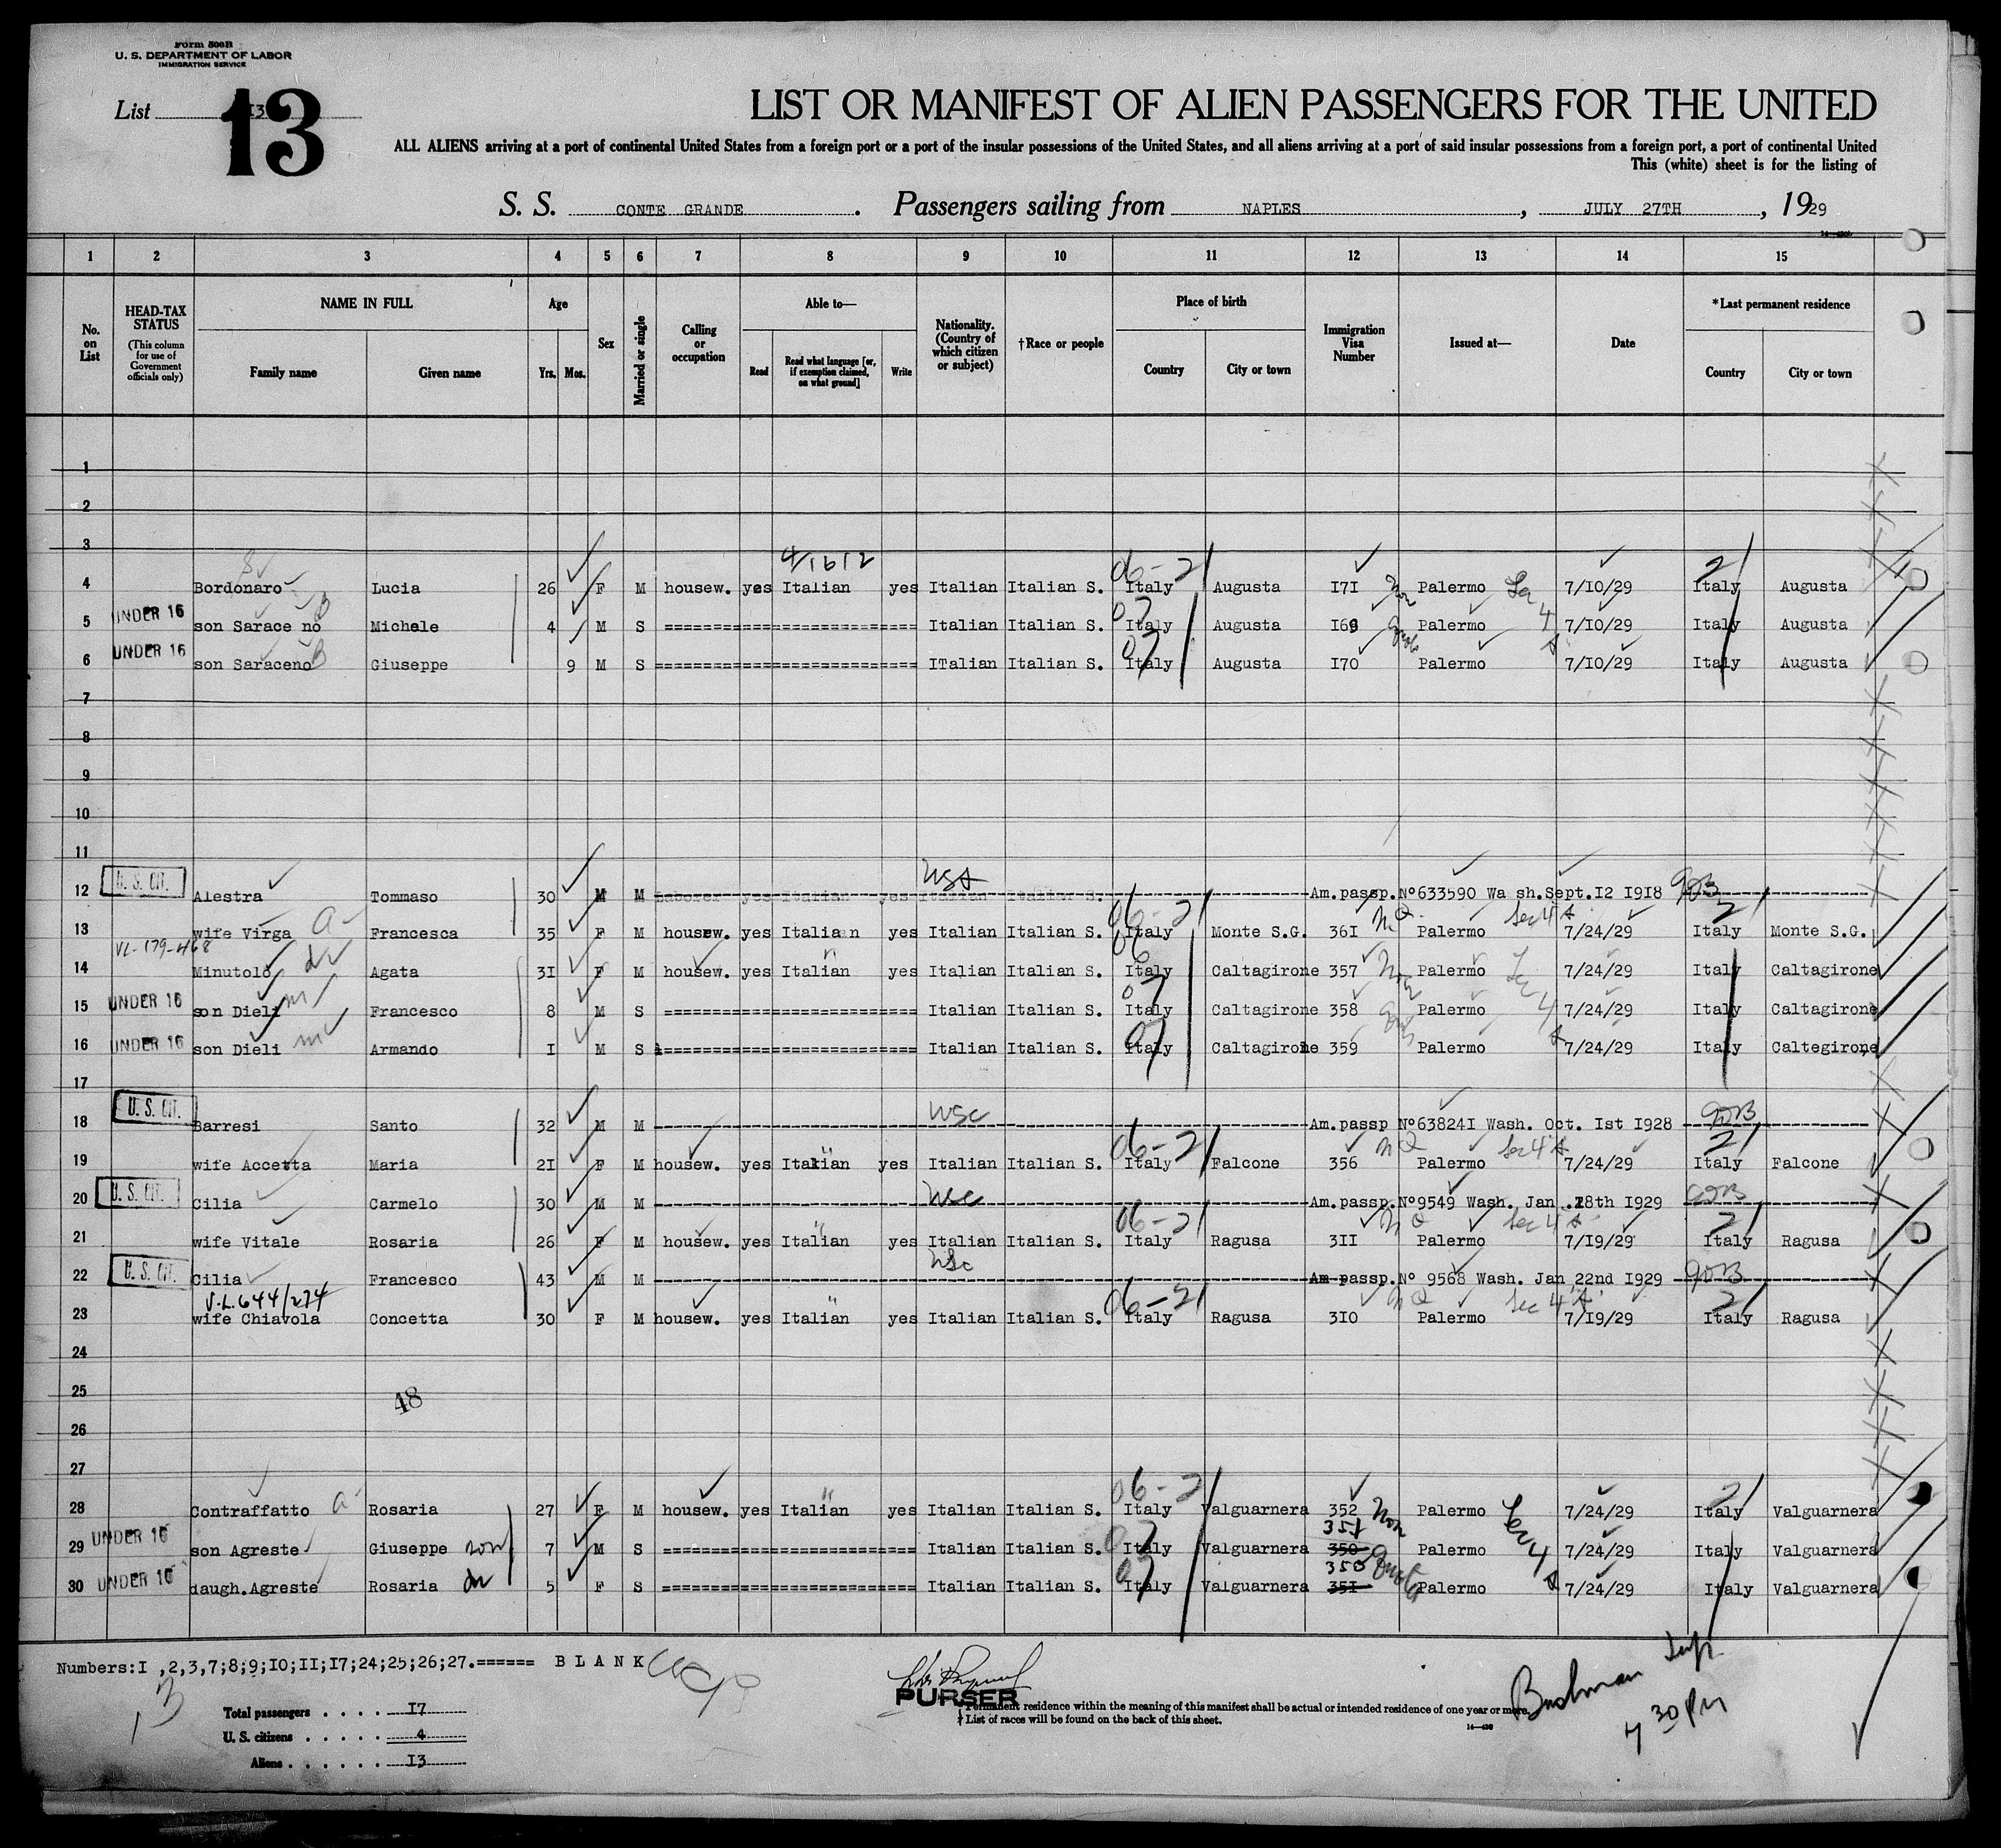 Form 500B
U. S. DEPARTMENT OF LABOR
IMMIGRATION SERVICE
List 13
13
LIST OR MANIFEST OF ALIEN PASSENGERS FOR THE UNITED
ALL ALIENS arriving at a port of continental United States from a foreign port or a port of the insular possessions of the United States, and all aliens arriving at a port of said insular possessions from a foreign port, a port of continental United
This (white) sheet is for the listing of
S. S. CONTE GRANDE. Passengers sailing from NAPLES, JULY 27TH, 1929
1 2 3 4 5 6 7 8 9 10 11 12 13 14 15
No. on List
HEAD-TAX STATUS
(This column for use of Government officials only)
NAME IN FULL
Family name Given name
Age
Yrs. Mos.
Sex
Married or single
Calling or occupation
Able to—
Read
Read what language [or, if exemption claimed, on what ground]
Write
Nationality. (Country of which citizen or subject)
†Race or people
Place of birth
Country City or town
Immigration Visa Number
Issued at—
Date
*Last permanent residence
Country City or town
1
2
3
4/1612 06-2 2
4 Bordonaro Lucia 26 F M housew. yes Italian yes Italian Italian S. Italy Augusta I7I Non Palermo Sec 4 7/IO/29 Italy Augusta
5 UNDER 16 son Sarace no B Michele 4 M S ======================== Italian Italian S. 07 Italy Augusta I69 Quota Palermo A 7/IO/29 Italy Augusta
6 UNDER 16 son Saraceno B Giuseppe 9 M S ======================== ITalian Italian S. 07 Italy Augusta I70 Palermo 7/IO/29 Italy Augusta
7
8
9
10
11
12 U. S. CIT. Alestra Tommaso 30 M M Laborer yes Italian yes Italian Italian S. Am.passp.Nº633590 Wa sh.Sept.I2 I9I8
13 wife Virga a Francesca 35 F M housew. yes Italian yes Italian Italian S. 06-2 Italy Monte S.G. 36I NQ Palermo Sec 4 A 7/24/29 2 Italy Monte S.G.
VL-179-468
14 Minutolo Agata 3I F M housew. yes Italian yes Italian Italian S. 06 Italy Caltagirone 357 Non Palermo Sec 4 7/24/29 Italy Caltagirone
15 UNDER 16 son Dieli m Francesco 8 M S ======================== Italian Italian S. 07 Italy Caltagirone 358 Quota Palermo A 7/24/29 Italy Caltagirone
16 UNDER 16 son Dieli m Armando I M S ======================== Italian Italian S. 07 Italy Caltagirone 359 Palermo 7/24/29 Italy Caltegirone
17
18 U. S. CIT. Barresi Santo 32 M M USC Am.passp Nº63824I Wash. Oct. Ist I928
19 wife Accetta Maria 2I F M housew. yes Italian yes Italian Italian S. 06-2 Italy Falcone 356 NQ Palermo Sec 4 A 7/24/29 2 Italy Falcone
20 U. S. CIT. Cilia Carmelo 30 M M USC Am.passp.Nº9549 Wash. Jan .28th I929
21 wife Vitale Rosaria 26 F M housew. yes Italian yes Italian Italian S. 06-2 Italy Ragusa 3II NQ Palermo Sec 4 A 7/I9/29 2 Italy Ragusa
22 U. S. CIT. Cilia Francesco 43 M M USC Am passp.Nº 9568 Wash. Jan 22nd I929
V.L.644/274
23 wife Chiavola Concetta 30 F M housew. yes Italian yes Italian Italian S. 06-2 Italy Ragusa 3IO NQ Palermo Sec 4 A 7/I9/29 2 Italy Ragusa
24
25 48
26
27
28 Contraffatto a Rosaria 27 F M housew. yes Italian yes Italian Italian S. 06-2 Italy Valguarnera 352 Non Palermo Sec 4 7/24/29 2 Italy Valguarnera
29 UNDER 16 son Agreste Giuseppe son 7 M S ======================== Italian Italian S. 07 Italy Valguarnera 351 350 Quota Palermo A 7/24/29 Italy Valguarnera
30 UNDER 16 daugh.Agreste Rosaria 5 F S ======================== Italian Italian S. 07 Italy Valguarnera 350 35I Palermo 7/24/29 Italy Valguarnera
Numbers:I ,2,3,7;8;9;IO;II;I7;24;25;26;27.====== B L A N K
13
Total passengers . . . . I7
U. S. citizens . . . . . 4
Aliens . . . . . . I3
PURSER
* Permanent residence within the meaning of this manifest shall be actual or intended residence of one year or more.
† List of races will be found on the back of this sheet.
Bushman Insp
7 30 PM